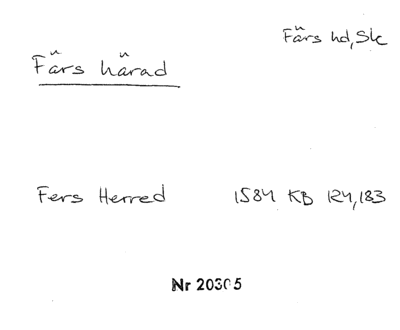 Färs hd, Sk
Färs härad
Fers Herred 1584 KB 124,183
Nr 20305